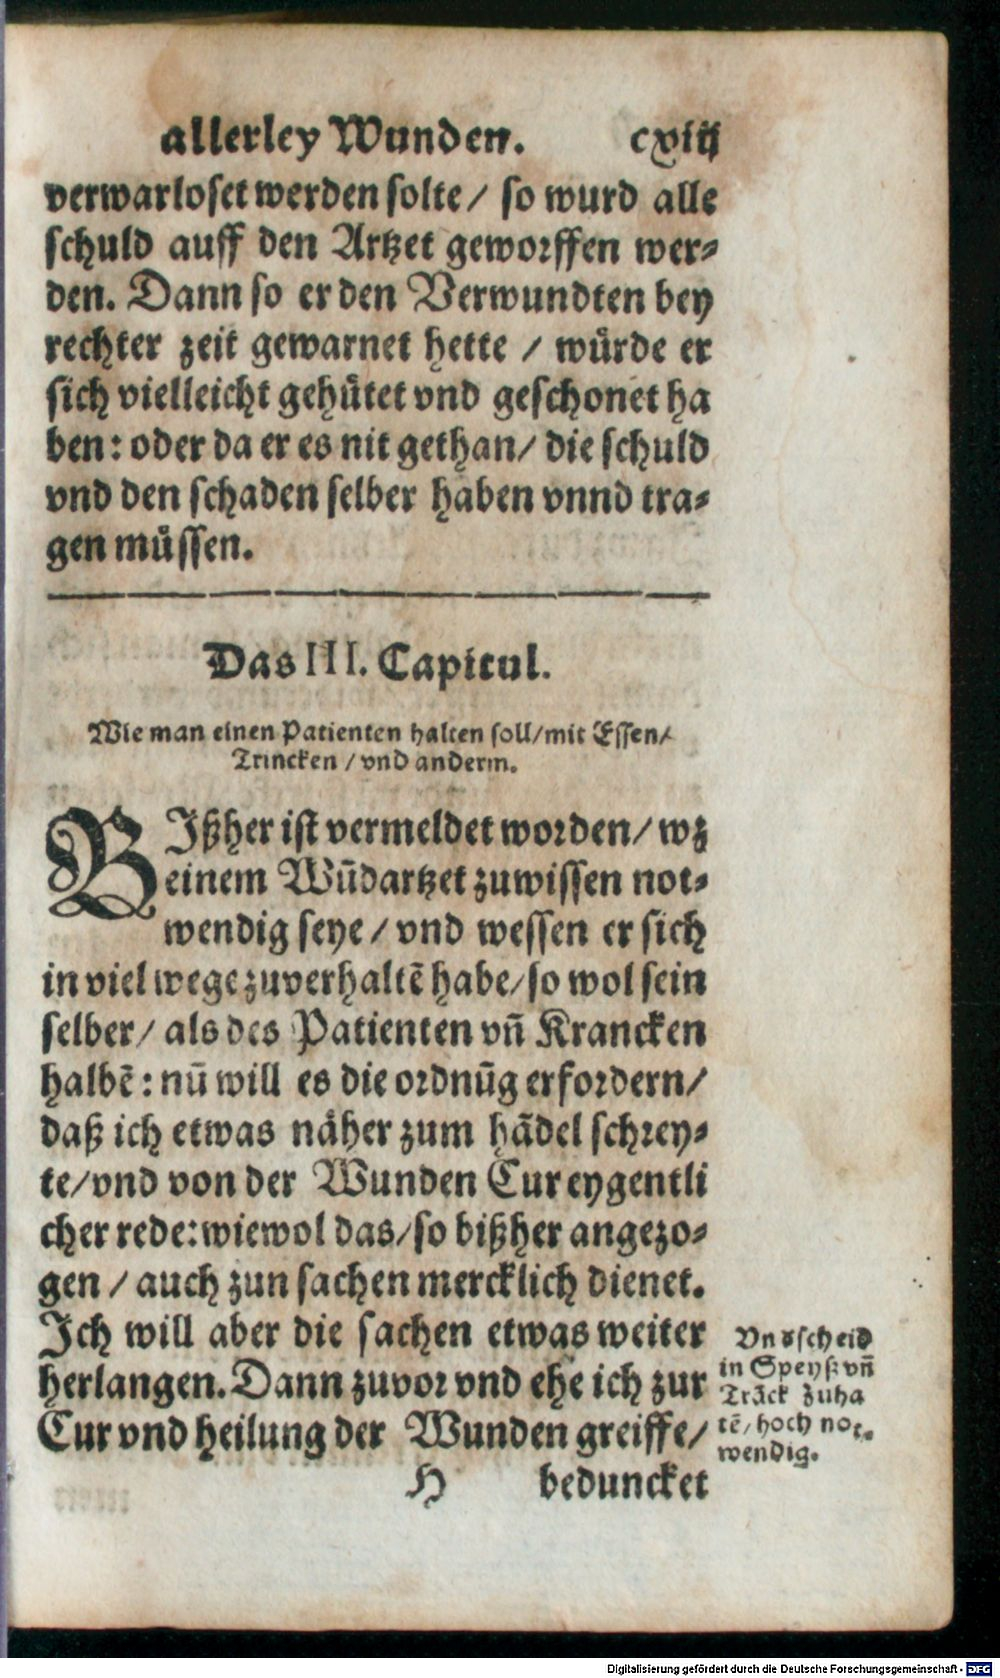 allerley Wunden. cxiij
verwarloset werden solte/ so wurd alle
schuld auff den Artzet geworffen wer⸗
den. Dann so er den Verwundten bey
rechter zeit gewarnet hette / wuͤrde er
sich vielleicht gehuͤtet vnd geschonet ha
ben: oder da er es nit gethan/ die schuld
vnd den schaden selber haben vnnd tra⸗
gen muͤssen.
Das III. Capitul.
Wie man einen Patienten halten soll/mit Essen/
Trincken /vnd anderm.
BIßher ist vermeldet worden/ wz
einem Wūdartzet zuwissen not⸗
wendig seye / vnd wessen er sich
in viel wege zuverhaltē habe/so wol sein
selber/ als des Patienten vñ Krancken
halbē: nū will es die ordnūg erfordern/
daß ich etwas naͤher zum hādel schrey⸗
te/vnd von der Wunden Cur eygentli
cher rede: wiewol das/so bißher angezo⸗
gen / auch zun sachen mercklich dienet.
Ich will aber die sachen etwas weiter
herlangen. Dann zuvor vnd ehe ich zur
Cur vnd heilung der Wunden greiffe/
Vndscheid
in Speyß vñ
Trāck zuha
tē/hoch not⸗
wendig.
H beduncket
Digitalisierung gefördert durch die Deutsche Forschungsgemeinschaft - DFG